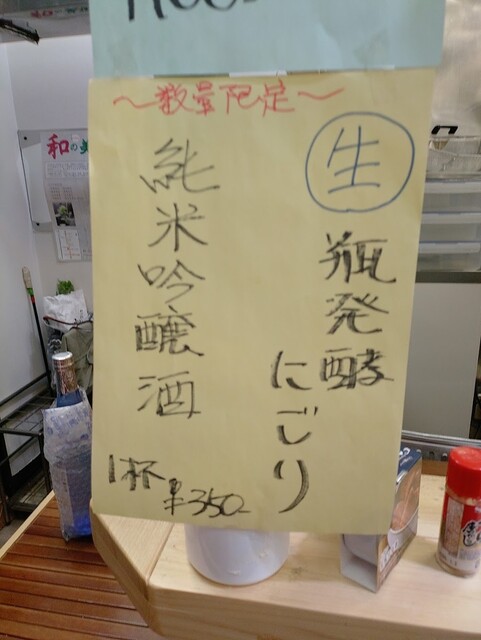 〜数量限定〜
生
瓶発酵
にごり
純米吟醸酒
1杯 ¥350-
和の